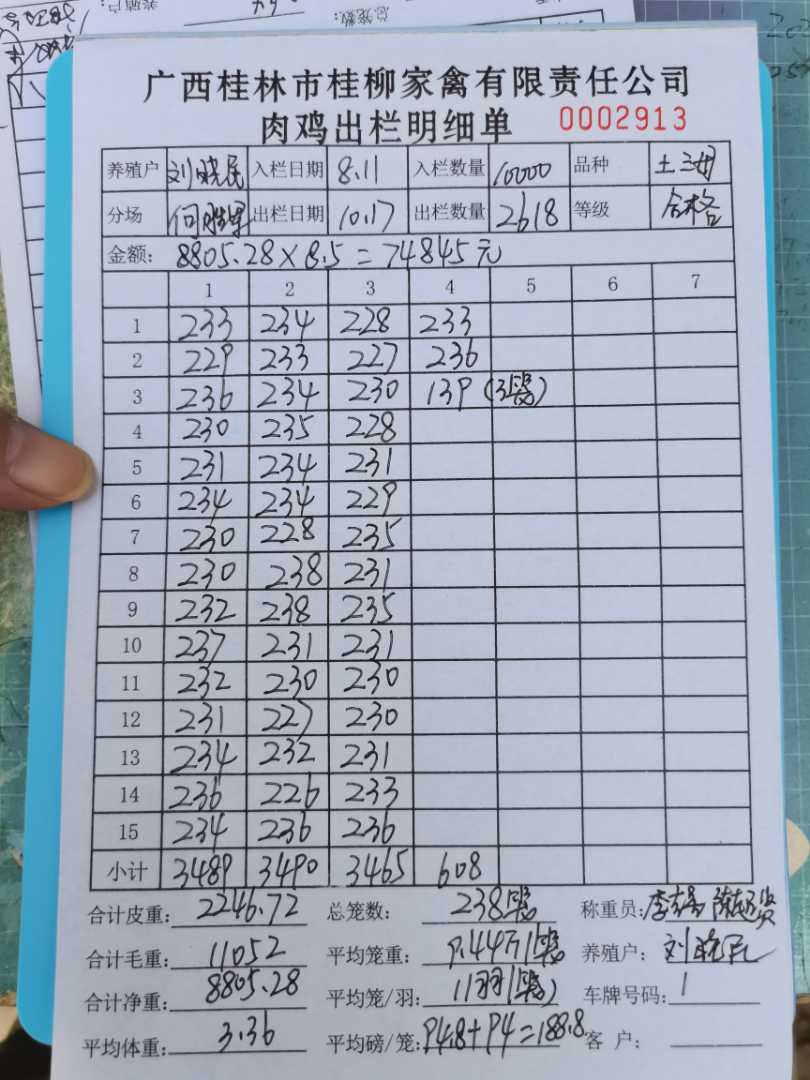 广西桂林市桂柳家禽有限责任公司
肉鸡出栏明细单 0002913
养殖户 刘晓民 入栏日期 8.11 入栏数量 10000 品种 土三母
分场 出栏日期 10.17 出栏数量 2618 等级 合格
金额: 8805.28×8.5=74845元
1 2 3 4 5 6 7
1 233 234 228 233
2 229 233 227 236
3 236 234 230 139 (3笼)
4 230 235 228
5 231 234 231
6 234 234 229
7 230 228 235
8 230 238 231
9 232 238 235
10 237 231 231
11 232 230 230
12 231 227 230
13 234 232 231
14 236 226 233
15 234 236 236
小计 3489 3490 3465 608
合计皮重: 2246.72 总笼数: 238笼 称重员:
合计毛重: 11052 平均笼重: 9.44斤/笼 养殖户: 刘晓民
合计净重: 8805.28 平均笼/羽: 11羽/笼 车牌号码: 1
平均体重: 3.36 平均磅/笼: 94.8+94=188.8 客 户: